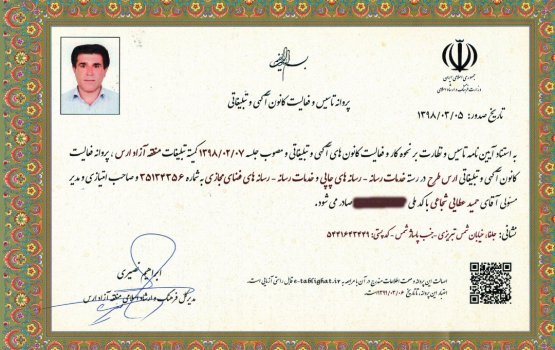 جمهوری اسلامی ایران
وزارت فرهنگ و ارشاد اسلامی
پروانه تاسیس و فعالیت کانون آگهی و تبلیغاتی
تاریخ صدور: ۱۳۹۸/۰۳/۰۵
به استناد آیین نامه تاسیس و نظارت بر نحوه کار و فعالیت کانون های آگهی و تبلیغاتی و مصوب جلسه ۱۳۹۸/۰۲/۰۷ کمیته تبلیغات منطقه آزاد ارس ، پروانه فعالیت
کانون آگهی و تبلیغاتی ارس طرح در رسته خدمات رسانه - رسانه های چاپی و خدمات رسانه - رسانه های فضای مجازی به شماره ۳۵۱۳۴۳۵۶ و صاحب امتیازی و مدیر
مسئولی آقای حمید عطایی شجاعی با کد ملی صادر می شود.
نشانی: جلفا، خیابان شمس تبریزی - جنب پاساژ شمس - کد پستی: ۵۴۴۱۶۴۳۴۴۹
اصالت این پروانه و صحت اطلاعات مندرج در آن با مراجعه به e-tablighat.ir قابل راستی آزمایی است.
اعتبار این پروانه، تا تاریخ ۱۳۹۹/۰۳/۰۶ است.
ابراهیم نصیری
مدیر کل فرهنگ و ارشاد اسلامی منطقه آزاد ارس